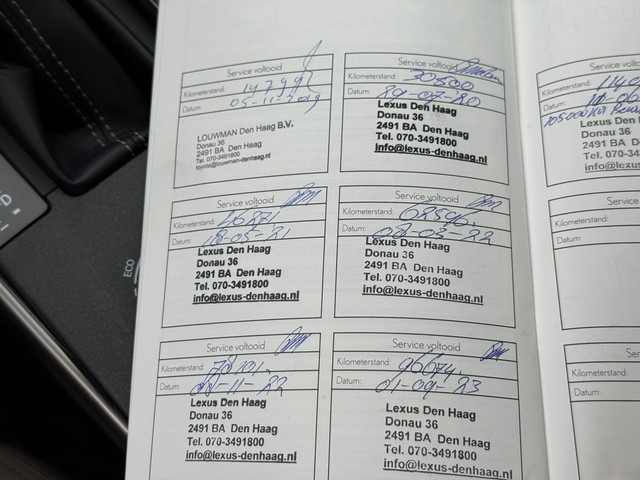 Service voltooid
Kilometerstand: 14799
Datum: 05-11-2019
LOUWMAN Den Haag B.V.
Donau 36
2491 BA Den Haag
Tel. 070-3491800
toyota@louwman-denhaag.nl
Service voltooid
Kilometerstand: 30500
Datum: 29-07-20
Lexus Den Haag
Donau 36
2491 BA Den Haag
Tel. 070-3491800
info@lexus-denhaag.nl
Service voltooid
Kilometerstand:
Datum: 18-05-21
Lexus Den Haag
Donau 36
2491 BA Den Haag
Tel. 070-3491800
info@lexus-denhaag.nl
Service voltooid
Kilometerstand: 68546
Datum: 02-03-22
Lexus Den Haag
Donau 36
2491 BA Den Haag
Tel. 070-3491800
info@lexus-denhaag.nl
Service voltooid
Kilometerstand: 78101
Datum: 22-11-22
Lexus Den Haag
Donau 36
2491 BA Den Haag
Tel. 070-3491800
info@lexus-denhaag.nl
Service voltooid
Kilometerstand: 96674
Datum: 01-09-23
Lexus Den Haag
Donau 36
2491 BA Den Haag
Tel. 070-3491800
info@lexus-denhaag.nl
Se
Kilometerstand:
Datum:
Lexus Den
Donau 36
2491 BA
Tel. 070-3
info@lexus
Serv
Kilometerstand:
Datum:
Ser
Kilometerstand:
Datum:
ECO